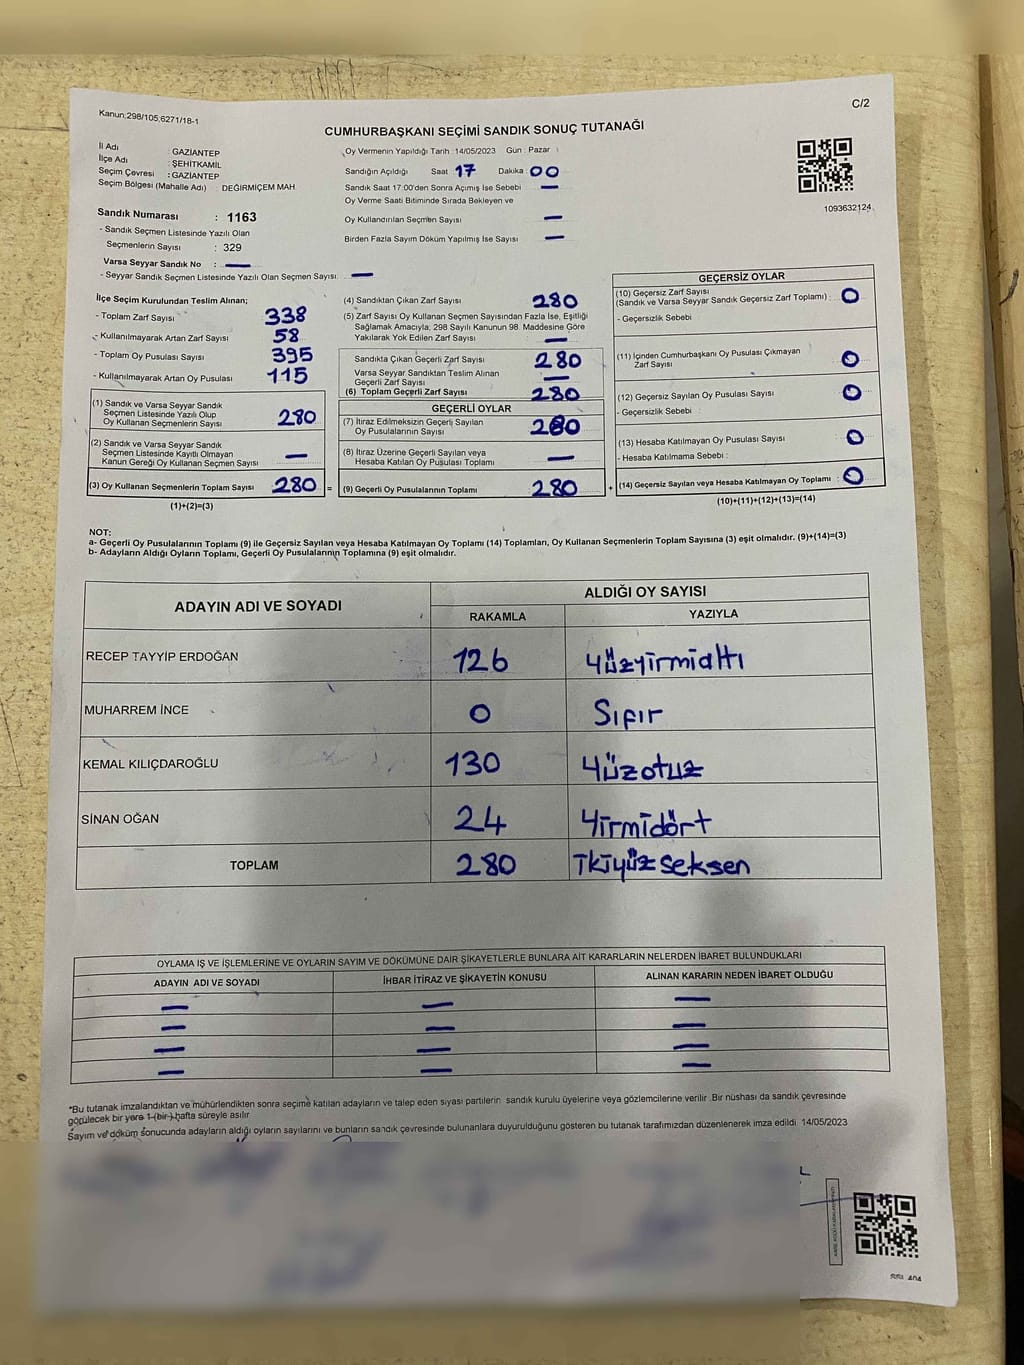 Kanun;298/105,6271/18-1
C/2
CUMHURBAŞKANI SEÇİMİ SANDIK SONUÇ TUTANAĞI
İl Adı : GAZİANTEP
İlçe Adı : ŞEHİTKAMİL
Seçim Çevresi : GAZİANTEP
Seçim Bölgesi (Mahalle Adı) : DEĞİRMİÇEM MAH.
Sandık Numarası : 1163
- Sandık Seçmen Listesinde Yazılı Olan
Seçmenlerin Sayısı : 329
Varsa Seyyar Sandık No : —
- Seyyar Sandık Seçmen Listesinde Yazılı Olan Seçmen Sayısı: —
Oy Vermenin Yapıldığı Tarih :14/05/2023 Gün : Pazar
Sandığın Açıldığı Saat : 17 Dakika : 00
Sandık Saat 17:00'den Sonra Açımış İse Sebebi —
Oy Verme Saati Bitiminde Sırada Bekleyen ve
Oy Kullandırılan Seçmen Sayısı —
Birden Fazla Sayım Döküm Yapılmış İse Sayısı —
1093632124
İlçe Seçim Kurulundan Teslim Alınan;
- Toplam Zarf Sayısı 338
- Kullanılmayarak Artan Zarf Sayısı 58
- Toplam Oy Pusulası Sayısı 395
- Kullanılmayarak Artan Oy Pusulası 115
(1) Sandık ve Varsa Seyyar Sandık
Seçmen Listesinde Yazılı Olup
Oy Kullanan Seçmenlerin Sayısı 280
(2) Sandık ve Varsa Seyyar Sandık
Seçmen Listesinde Kayıtlı Olmayan
Kanun Gereği Oy Kullanan Seçmen Sayısı —
(3) Oy Kullanan Seçmenlerin Toplam Sayısı 280 =
(1)+(2)=(3)
(4) Sandıktan Çıkan Zarf Sayısı 280
(5) Zarf Sayısı Oy Kullanan Seçmen Sayısından Fazla İse, Eşitliği
Sağlamak Amacıyla; 298 Sayılı Kanunun 98. Maddesine Göre
Yakılarak Yok Edilen Zarf Sayısı —
Sandıkta Çıkan Geçerli Zarf Sayısı 280
Varsa Seyyar Sandıktan Teslim Alınan
Geçerli Zarf Sayısı —
(6) Toplam Geçerli Zarf Sayısı 280
GEÇERLİ OYLAR
(7) İtiraz Edilmeksizin Geçerli Sayılan
Oy Pusulalarının Sayısı 280
(8) İtiraz Üzerine Geçerli Sayılan veya
Hesaba Katılan Oy Pusulası Toplamı —
(9) Geçerli Oy Pusulalarının Toplamı 280 +
GEÇERSİZ OYLAR
(10) Geçersiz Zarf Sayısı
(Sandık ve Varsa Seyyar Sandık Geçersiz Zarf Toplamı) : 0
- Geçersizlik Sebebi :
(11) İçinden Cumhurbaşkanı Oy Pusulası Çıkmayan
Zarf Sayısı 0
(12) Geçersiz Sayılan Oy Pusulası Sayısı 0
- Geçersizlik Sebebi :
(13) Hesaba Katılmayan Oy Pusulası Sayısı 0
- Hesaba Katılmama Sebebi :
(14) Geçersiz Sayılan veya Hesaba Katılmayan Oy Toplamı : 0
(10)+(11)+(12)+(13)=(14)
NOT:
a- Geçerli Oy Pusulalarının Toplamı (9) ile Geçersiz Sayılan veya Hesaba Katılmayan Oy Toplamı (14) Toplamları, Oy Kullanan Seçmenlerin Toplam Sayısına (3) eşit olmalıdır. (9)+(14)=(3)
b- Adayların Aldığı Oyların Toplamı, Geçerli Oy Pusulalarının Toplamına (9) eşit olmalıdır.
ADAYIN ADI VE SOYADI
ALDIĞI OY SAYISI
RAKAMLA YAZIYLA
RECEP TAYYİP ERDOĞAN 126 yüzyirmialtı
MUHARREM İNCE 0 Sıfır
KEMAL KILIÇDAROĞLU 130 yüzotuz
SİNAN OĞAN 24 yirmidört
TOPLAM 280 ikiyüz seksen
OYLAMA İŞ VE İŞLEMLERİNE VE OYLARIN SAYIM VE DÖKÜMÜNE DAİR ŞİKAYETLERLE BUNLARA AİT KARARLARIN NELERDEN İBARET BULUNDUKLARI
ADAYIN ADI VE SOYADI İHBAR İTİRAZ VE ŞİKAYETİN KONUSU ALINAN KARARIN NEDEN İBARET OLDUĞU
— — —
— — —
— — —
— — —
*Bu tutanak imzalandıktan ve mühürlendikten sonra seçime katılan adayların ve talep eden siyasi partilerin sandık kurulu üyelerine veya gözlemcilerine verilir .Bir nüshası da sandık çevresinde
görülecek bir yere 1 (bir) hafta süreyle asılır
Sayım ve döküm sonucunda adayların aldığı oyların sayılarını ve bunların sandık çevresinde bulunanlara duyurulduğunu gösteren bu tutanak tarafımızdan düzenlenerek imza edildi. 14/05/2023